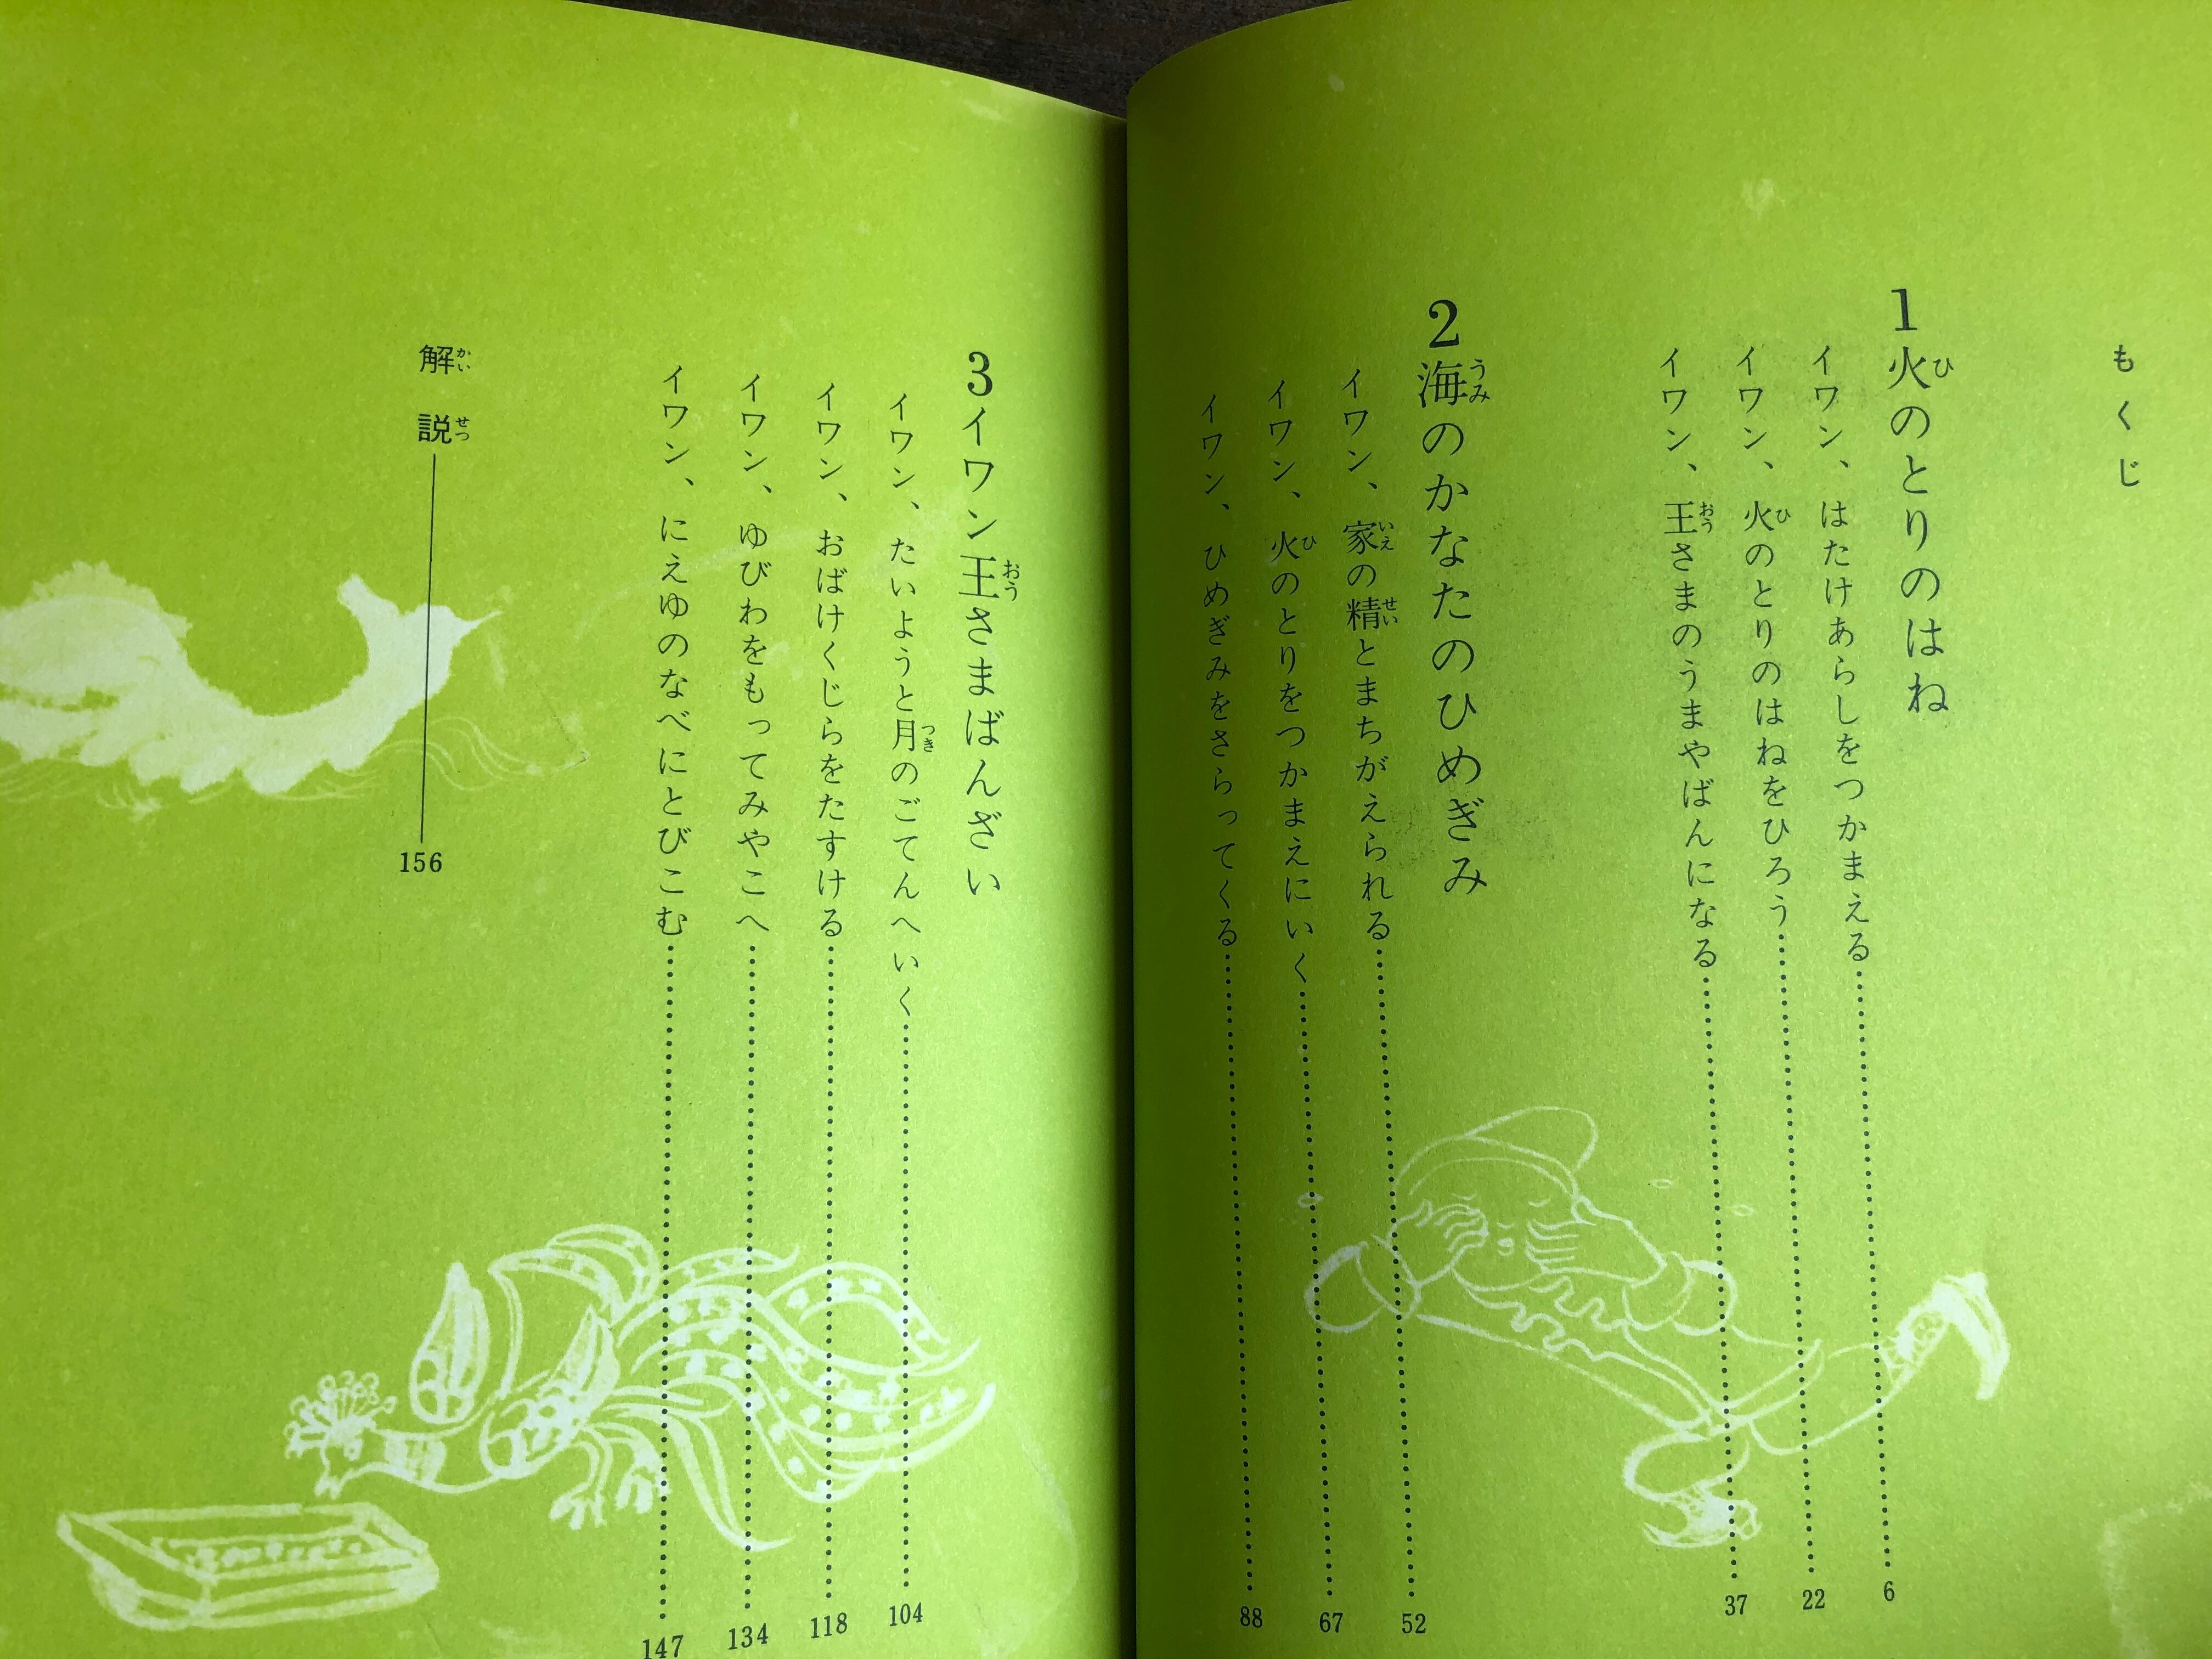 もくじ
1 火のとりのはね
イワン、はたけあらしをつかまえる 6
イワン、火のとりのはねをひろう 22
イワン、王さまのうまやばんになる 37
2 海のかなたのひめぎみ
イワン、家の精とまちがえられる 52
イワン、火のとりをつかまえにいく 67
イワン、ひめぎみをさらってくる 88
3 イワン王さまばんざい
イワン、たいようと月のごてんへいく 104
イワン、おばけくじらをたすける 118
イワン、ゆびわをもってみやこへ 134
イワン、にえゆのなべにとびこむ 147
解説 156